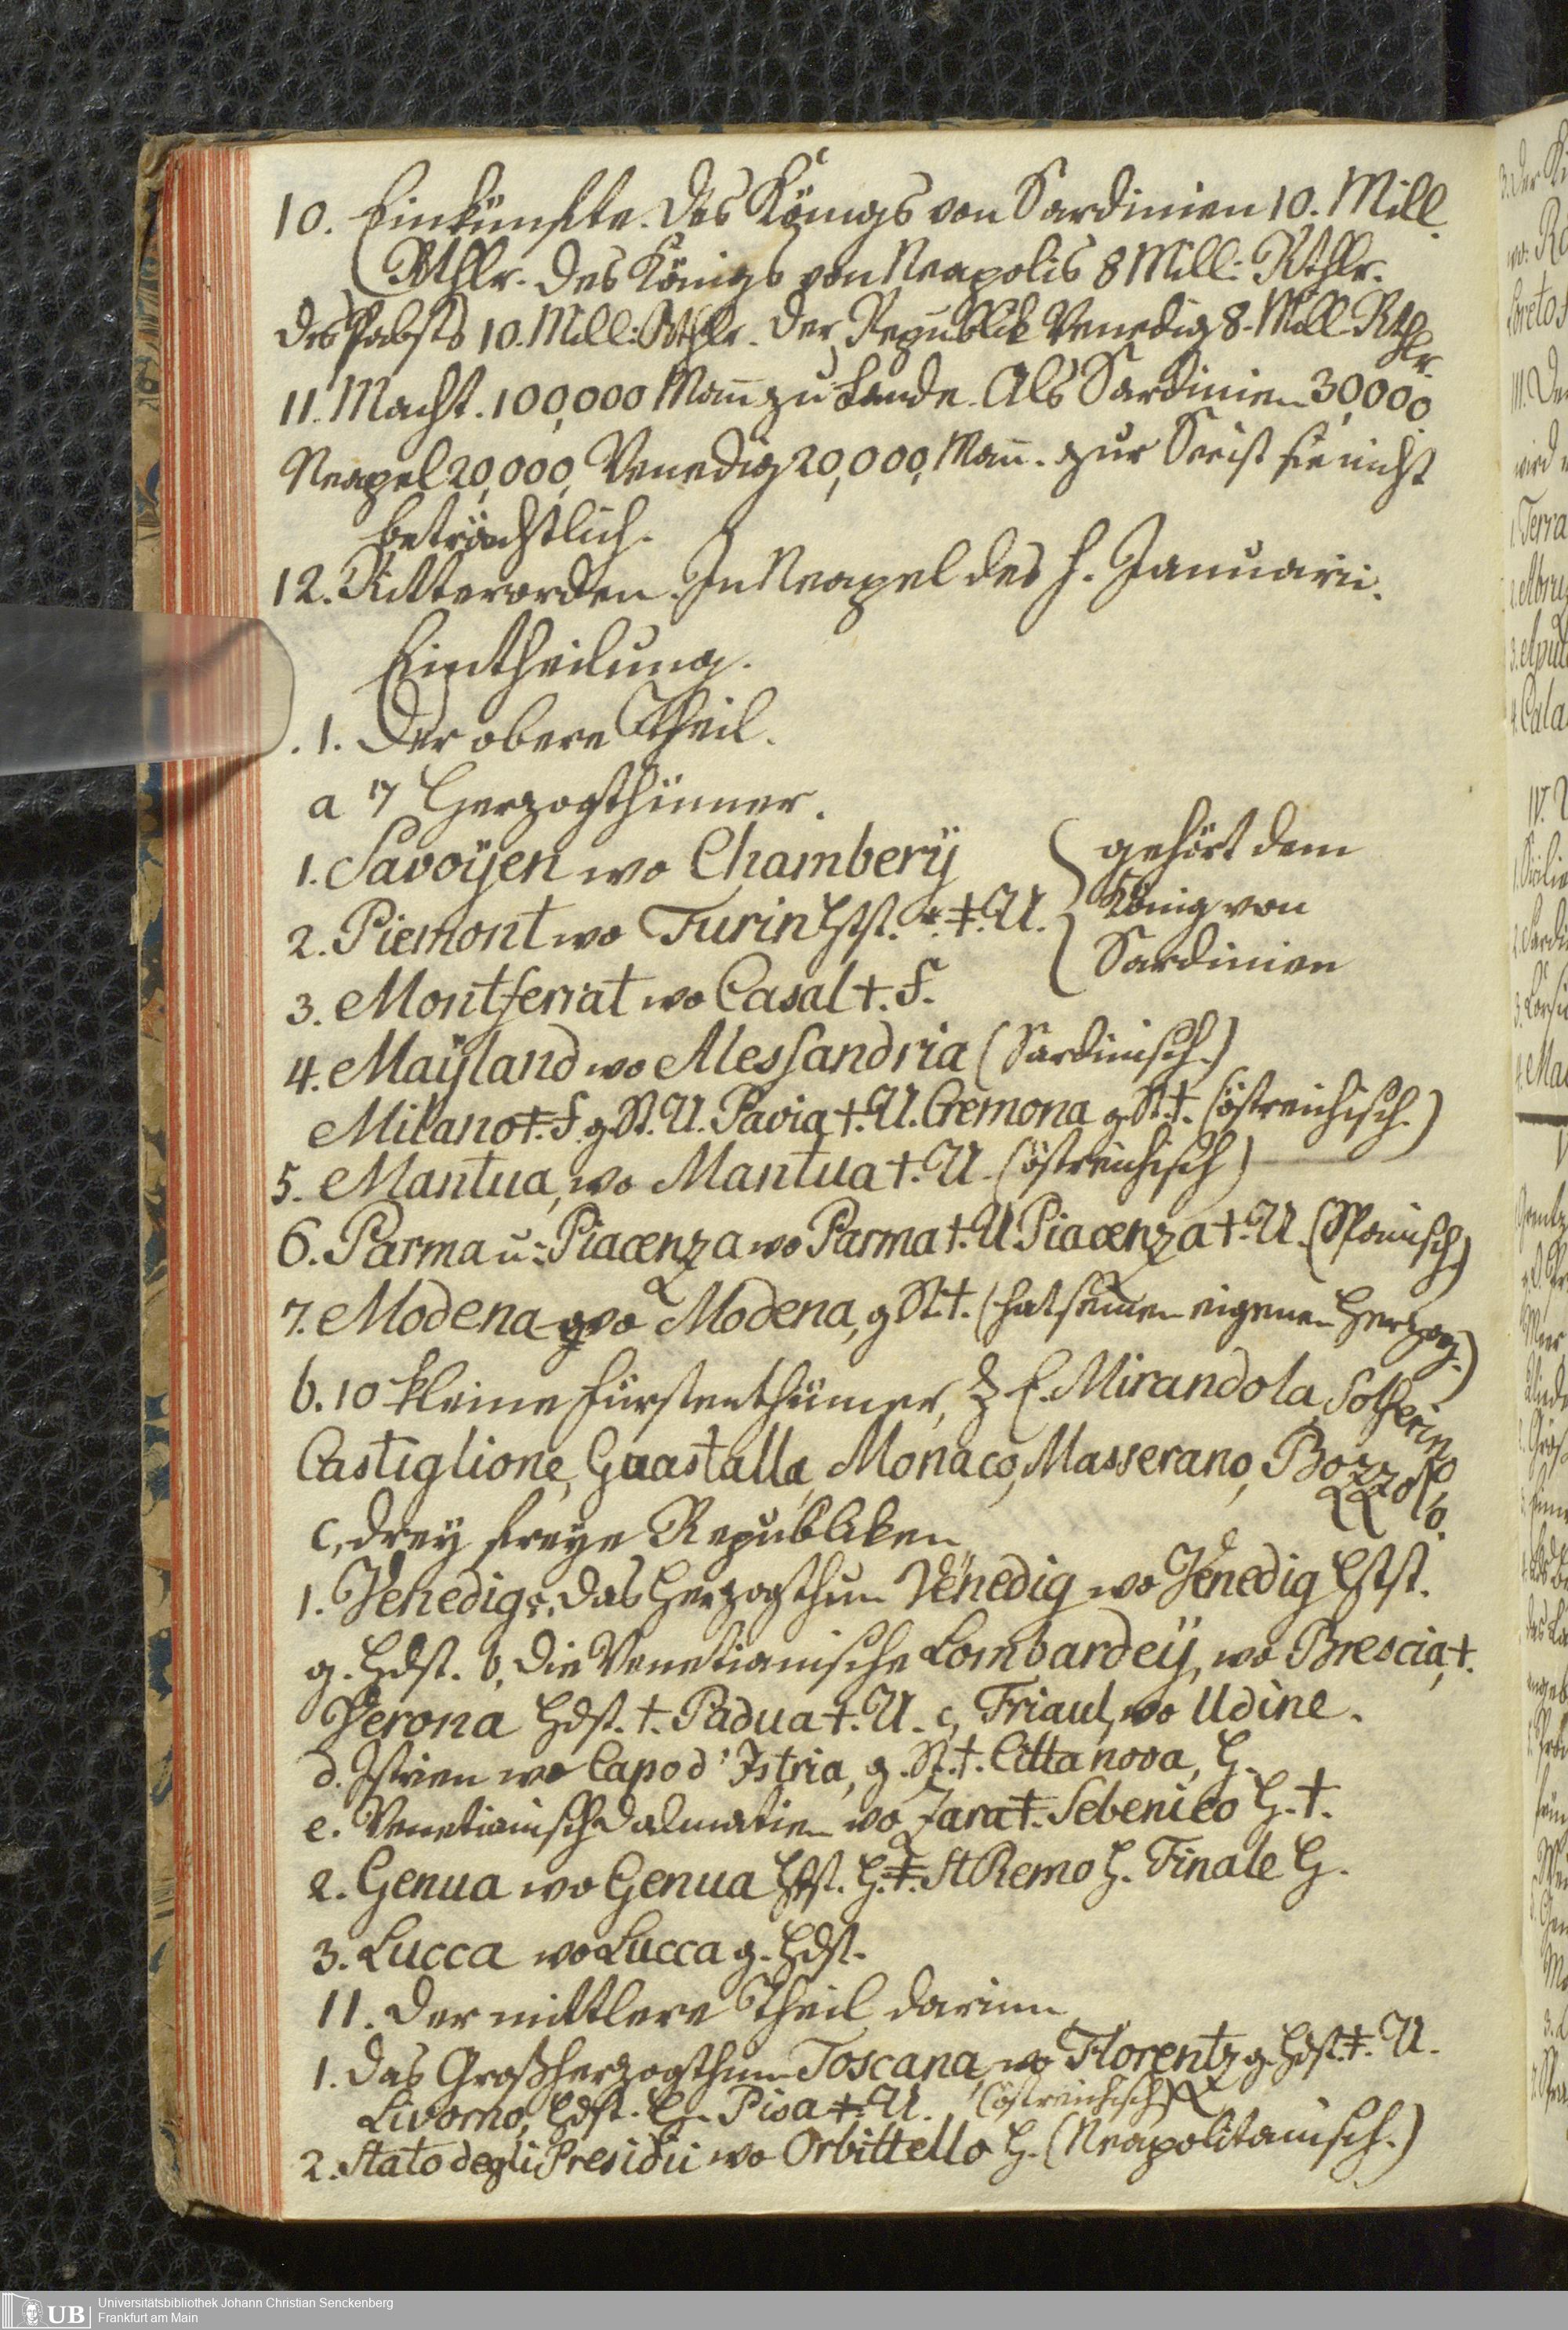 10. Einkünfte. des Königs von Sardinien 10. Mill.
Rthlr. des Königs von Neapolis 8 Mill: Rthlr.
des Pabsts 10. Mill: Rthlr. der Republik Venedig 8. Mill Rthlr.
11. Macht. 100,000 Mañ zu Lande. Als Sardinien 30,000.
Neapel 20,000, Venedig 20,000, Mañ. zur See ist sie nicht
beträchtlich.
12. Ritterorden. In Neapel des h. Januarii.
Eintheilung.
1. Der obere Theil.
a 7 Herzogthümer.
1. Savoÿen wo Chamberÿ
2. Piemont wo Turin Hptst. *. ‡. U.
3. Montferrat wo Casal †. f.
gehört dem
König von
Sardinien
4. Maÿland wo Alessandria (Sardinisch.)
Milano ‡. f. g. St. U. Pavia †. U. Cremona g. St. †. (östreichisch.)
5. Mantua, wo Mantua †. U. (östreichisch)
6. Parma u: Piacenza wo Parma †. U. Piacenza †. U. (Spanisch)
7. Modena wo Modena, g St. †. (hat seinen eigenen Herzog.)
b. 10 kleine Fürstenthümer, z. E. Mirandola, Solferino
Castiglione, Guastalla, Monaco, Masserano, Bozzolo.
c, dreÿ freÿe Republiken
1. Venedig, das Herzogthum Venedig wo Venedig Hptst.
g. Hdst. b, die Venetianische Lombardeÿ, wo Brescia, †.
Verona Hdst. †. Padua †. U. c, Friaul, wo Udine.
d. Istrien wo Capo d'Istria, g. St. †. Citta nova, H.
e. Venetianisch Dalmatien wo Zara ‡. Sebenico H. †.
2. Genua wo Genua Hptst. H. ‡. St Remo H. Finale H.
3. Lucca wo Lucca g. Hdst.
11. Der mittlere Theil darinn
1. Das Großherzogthum Toscana, wo Florentz g. Hdst. ‡. U.
Livorno, Hdst. H. Pisa ‡. U. (östreichisch)
2. Stato degli Presidii wo Orbittello H. (Neapolitanisch.)
UB Universitätsbibliothek Johann Christian Senckenberg
Frankfurt am Main